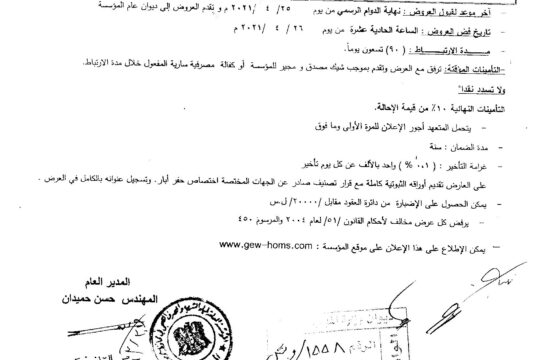 - آخر موعد لقبول العروض : نهاية الدوام الرسمي من يوم ٢٥ / ٤ / ٢٠٢١ م و تقدم العروض إلى ديوان عام المؤسسة
- تاريخ فض العروض : الساعة الحادية عشرة من يوم ٢٦ / ٤ / ٢٠٢١ م
- مدة الارتباط : ( ٩٠ ) تسعون يوماً.
- التأمينات المؤقتة: ترفق مع العرض وتقدم بموجب شيك مصدق و مجير للمؤسسة أو كفالة مصرفية سارية المفعول خلال مدة الارتباط.
ولا تسدد نقدا"
التأمينات النهائية ١٠٪ من قيمة الإحالة.
- يتحمل المتعهد أجور الإعلان للمرة الأولى وما فوق
- مدة الضمان : سنة
- غرامة التأخير : ( ٠,٠٠١ % ) واحد بالألف عن كل يوم تأخير
على العارض تقديم أوراقه الثبوتية كاملة مع قرار تصنيف صادر عن الجهات المختصة اختصاص حفر آبار . وتسجيل عنوانه بالكامل في العرض .
- يمكن الحصول على الإضبارة من دائرة العقود مقابل /٢٠٠٠٠/ ل.س
- يرفض كل عرض مخالف لأحكام القانون /٥١/ لعام ٢٠٠٤ والمرسوم ٤٥٠
- يمكن الإطلاع على هذا الإعلان على موقع المؤسسة : www.gew-homs.com
المدير العام
المهندس حسن حميدان
الرقم ١٥٥٨